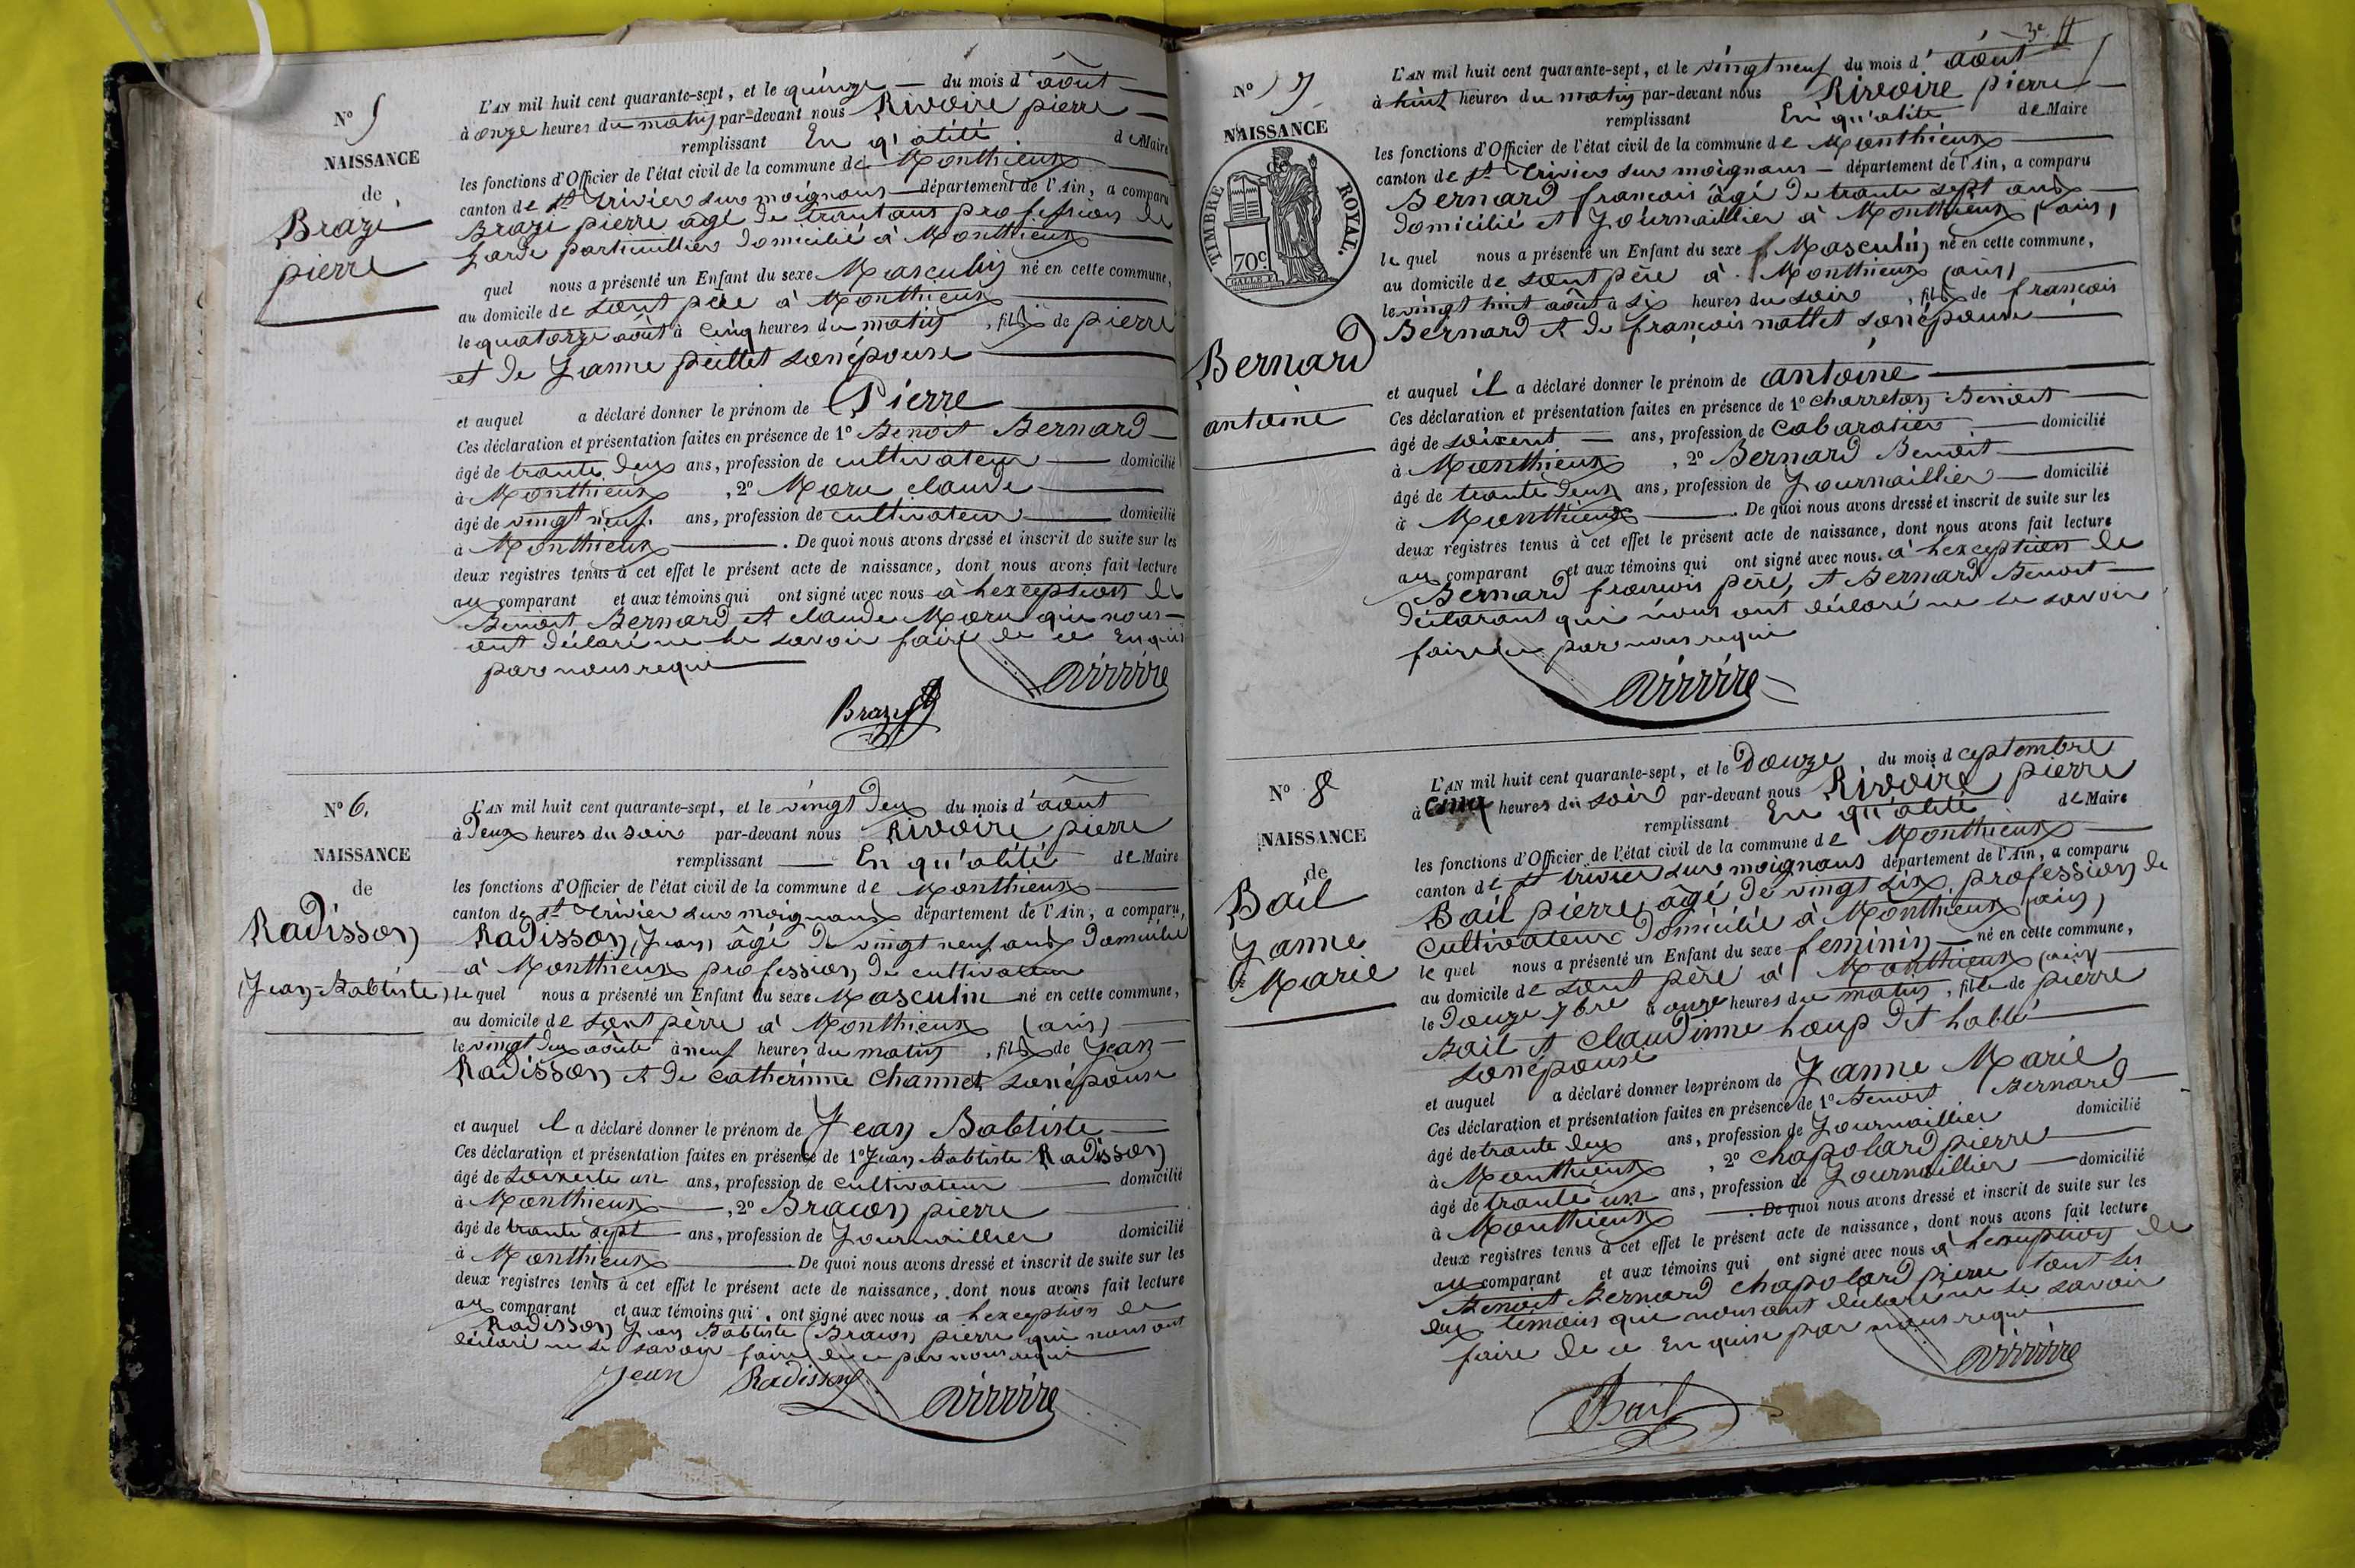 N° 5
NAISSANCE
de
Brazi
pierre
L'AN mil huit cent quarante-sept, et le quinze du mois d'août
à onze heures du matin par-devant nous Rivoire pierre
remplissant En qu'alité de Maire
les fonctions d'Officier de l'état civil de la commune de Monthieux
canton de St trivier sur moignans département de l'Ain, a comparu
Brazi pierre âgé de trantans profession de
garde particuillier domicilié à Monthieux
quel nous a présenté un Enfant du sexe Masculin né en cette commune,
au domicile de sont père à Monthieux
le quatorze août à cinq heures du matin, fils de pierre
et de Janne peillet son épouse
et auquel a déclaré donner le prénom de Pierre
Ces déclaration et présentation faites en présence de 1° Benoit Bernard
âgé de trante deux ans, profession de cultivateur domicilié
à Monthieux, 2° Moru claude
âgé de vingt neuf ans, profession de cultivateur domicilié
à Monthieux. De quoi nous avons dressé et inscrit de suite sur les
deux registres tenus à cet effet le présent acte de naissance, dont nous avons fait lecture
au comparant et aux témoins qui ont signé avec nous à lexception de
Benoit Bernard et claude Moru qui nous
ont déclaré ne le savoir faire de ce Enquis
par nous requi
Rivoire
Brazi
N° 6.
NAISSANCE
de
Radisson
(Jean-Babtiste)
L'AN mil huit cent quarante-sept, et le vingt deux du mois d'août
à Deux heures du soir par-devant nous Rivoire pierre
remplissant En qu'alité de Maire
les fonctions d'Officier de l'état civil de la commune de Monthieux
canton de St trivier sur moignans département de l'Ain, a comparu,
Radisson Jean âgé de vingt neuf ans domicilié
à Monthieux profession de cultivateur
le quel nous a présenté un Enfant du sexe Masculin né en cette commune,
au domicile de sont pèrre à Monthieux (ain)
le vingt deux août à neuf heures du matin, fils de Jean
Radisson et de catherinne channet son épouse
et auquel il a déclaré donner le prénom de Jean Babtiste
Ces déclaration et présentation faites en présence de 1° Jean Babtiste Radisson
âgé de soixente un ans, profession de cultivateur domicilié
à Monthieux, 2° Bracon pierre
âgé de trante sept ans, profession de Journaillier domicilié
à Monthieux. De quoi nous avons dressé et inscrit de suite sur les
deux registres tenus à cet effet le présent acte de naissance, dont nous avons fait lecture
au comparant et aux témoins qui ont signé avec nous a lexception de
Radisson Jean Babtiste Bracon pierre qui nous ont
déclaré ne le savoir faire de ce par nous requi
Jean Radisson Rivoire
3e
N° 7
NAISSANCE
de
TIMBRE ROYAL.
70c
Bernard
antoine
L'AN mil huit cent quarante-sept, et le vingt neuf du mois d'août
à huit heures du matin par-devant nous Rivoire pierre
remplissant En qu'alité de Maire
les fonctions d'Officier de l'état civil de la commune de Monthieux
canton de St trivier sur moignans département de l'Ain, a comparu
Bernard francois âgé de trante sept ans
domicilié et Journaillier à Monthieux (ain)
le quel nous a présenté un Enfant du sexe Masculin né en cette commune,
au domicile de sont père à Monthieux (ain)
le vingt huit août à six heures du soir, fils de françois
Bernard et de françois nattet son épouse
et auquel il a déclaré donner le prénom de antoine
Ces déclaration et présentation faites en présence de 1° charreton Benoit
âgé de soixent ans, profession de cabaratier domicilié
à Monthieux, 2° Bernard Benoit
âgé de trante deux ans, profession de Journaillier domicilié
à Monthieux. De quoi nous avons dressé et inscrit de suite sur les
deux registres tenus à cet effet le présent acte de naissance, dont nous avons fait lecture
au comparant et aux témoins qui ont signé avec nous. à lexception de
Bernard francois père, et Bernard Benoit
déclarant qui nous ont déclaré ne le savoir
faire par nous requi
Rivoire
N° 8
NAISSANCE
de
Bail
Janne
Marie
L'AN mil huit cent quarante-sept, et le Douze du mois d ceptembre
à cinq heures du soir par-devant nous Rivoire pierre
remplissant En qu'alité de Maire
les fonctions d'Officier de l'état civil de la commune de Monthieux
canton de St trivier sur moignans département de l'Ain, a comparu
Bail pierre, âgé de vingt six, profession de
cultivateur domicilié à Monthieux (ain)
le quel nous a présenté un Enfant du sexe feminin né en cette commune,
au domicile de sont père à Monthieux (ain)
le Douze 7bre à onze heures du matin, fille de pierre
Bail et Claudinne loup dit hablé
son épouse
et auquel a déclaré donner les prénom de Janne Marie
Ces déclaration et présentation faites en présence de 1° Benoit Bernard
âgé de trante deux ans, profession de Journaillier domicilié
à Monthieux, 2° chapolard pierre
âgé de trante un ans, profession de Journaillier domicilié
à Monthieux. De quoi nous avons dressé et inscrit de suite sur les
deux registres tenus à cet effet le présent acte de naissance, dont nous avons fait lecture
au comparant et aux témoins qui ont signé avec nous à lexception de
Benoit Bernard chapolard pierre tout les
deux témoins qui nous ont déclaré ne le savoir
faire de ce Enquise par nous requi
Rivoire
Bail